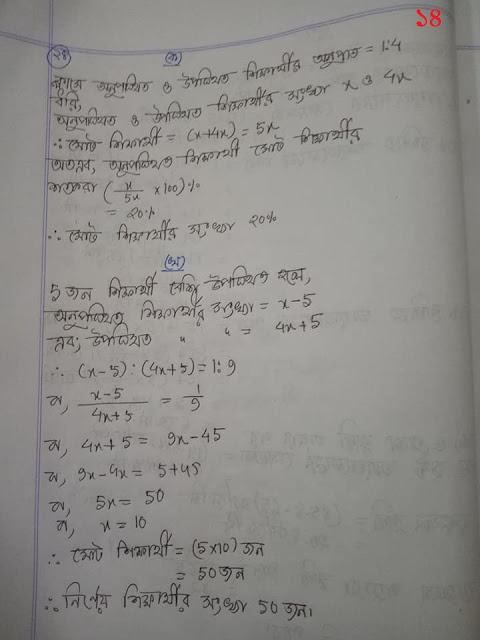 ১৪
২৪
(ক)
ক্লাসে অনুপস্থিত ও উপস্থিত শিক্ষার্থীর অনুপাত = 1:4
ধরি,
অনুপস্থিত ও উপস্থিত শিক্ষার্থীর সংখ্যা x ও 4x
∴ মোট শিক্ষার্থী = (x+4x) = 5x
অতএব, অনুপস্থিত শিক্ষার্থী মোট শিক্ষার্থীর
শতকরা (x/5x ×100)%
= ২০%
∴ মোট শিক্ষার্থীর সংখ্যা ২০%
(খ)
5 জন শিক্ষার্থী বেশি উপস্থিত হলে,
অনুপস্থিত শিক্ষার্থীর সংখ্যা = x-5
এবং উপস্থিত " " = 4x+5
∴ (x-5) : (4x+5) = 1:9
বা, x-5/4x+5 = 1/9
বা, 4x+5 = 9x-45
বা, 9x-4x = 5+45
বা, 5x = 50
বা, x = 10
∴ মোট শিক্ষার্থী = (5×10) জন
= 50 জন
∴ নির্ণেয় শিক্ষার্থীর সংখ্যা 50 জন।